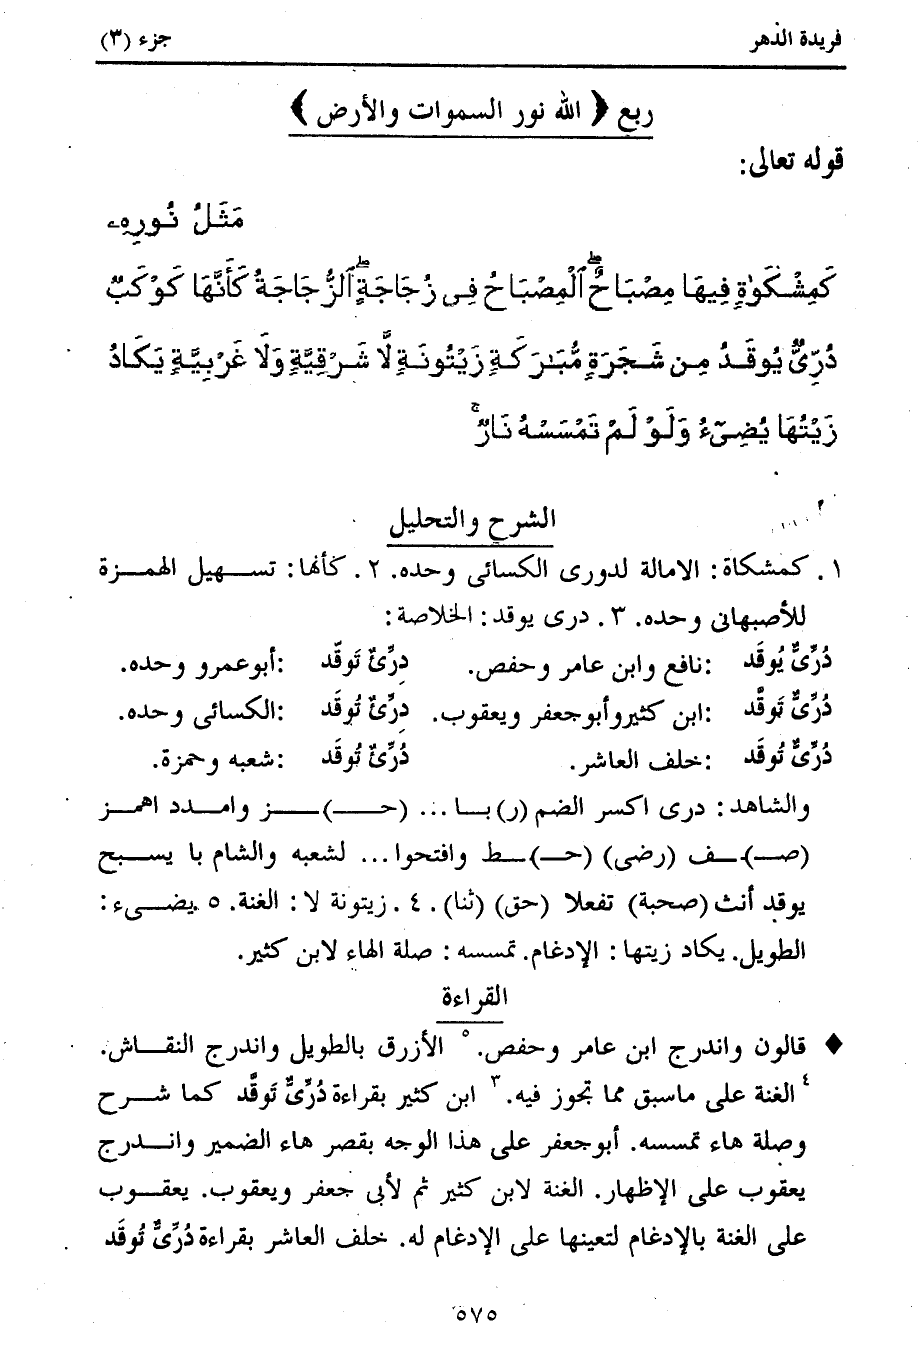 فريدة الدهر
جزء (٣)
ربع ﴿ الله نور السموات والأرض ﴾
قوله تعالى:
مَثَلُ نُورِهِۦ
كَمِشْكَوٰةٍ فِيهَا مِصْبَاحٌ ۖ ٱلْمِصْبَاحُ فِى زُجَاجَةٍ ۖ ٱلزُّجَاجَةُ كَأَنَّهَا كَوْكَبٌ
دُرِّىٌّ يُوقَدُ مِن شَجَرَةٍ مُّبَٰرَكَةٍ زَيْتُونَةٍ لَّا شَرْقِيَّةٍ وَلَا غَرْبِيَّةٍ يَكَادُ
زَيْتُهَا يُضِىٓءُ وَلَوْ لَمْ تَمْسَسْهُ نَارٌ ۚ
الشرح والتحليل
١. كمشكاة: الامالة لدورى الكسائى وحده. ٢. كأنها: تسهيل الهمزة
للأصبهانى وحده. ٣. درى يوقد: الخلاصة:
دُرِّىٌّ يُوقَد :نافع وابن عامر وحفص. دِرِّىٌٔ تَوقَّد :أبوعمرو وحده.
دُرِّىٌّ تَوقَّد :ابن كثيروأبوجعفر ويعقوب. دِرِّىٌٔ تُوقَد :الكسائى وحده.
دُرِّىٌّ تُوقَد :خلف العاشر. دُرِّىٌٔ تُوقَد :شعبه وحمزة.
والشاهد: درى اكسر الضم (ر)بـا... (حـ)ـز وامدد اهمز
(صـ)ـف (رضى) (حـ)ـط وافتحوا... لشعبه والشام با يسبح
يوقد أنث (صحبة) تفعلا (حق) (ثنا). ٤. زيتونة لا: الغنة. ٥ .يضىء:
الطويل. يكاد زيتها: الإدغام. تمسسه: صلة الهاء لابن كثير.
القراءة
♦ قالون واندرج ابن عامر وحفص. ٥ الأزرق بالطويل واندرج النقاش.
٤ الغنة على ماسبق مما تجوز فيه. ٣ ابن كثير بقراءة دُرِّىٌّ تَوقَّد كما شرح
وصلة هاء تمسسه. أبوجعفر على هذا الوجه بقصر هاء الضمير واندرج
يعقوب على الإظهار. الغنة لابن كثير ثم لأبى جعفر ويعقوب. يعقوب
على الغنة بالإدغام لتعينها على الإدغام له. خلف العاشر بقراءة دُرِّىٌّ تُوقَد
٥٧٥